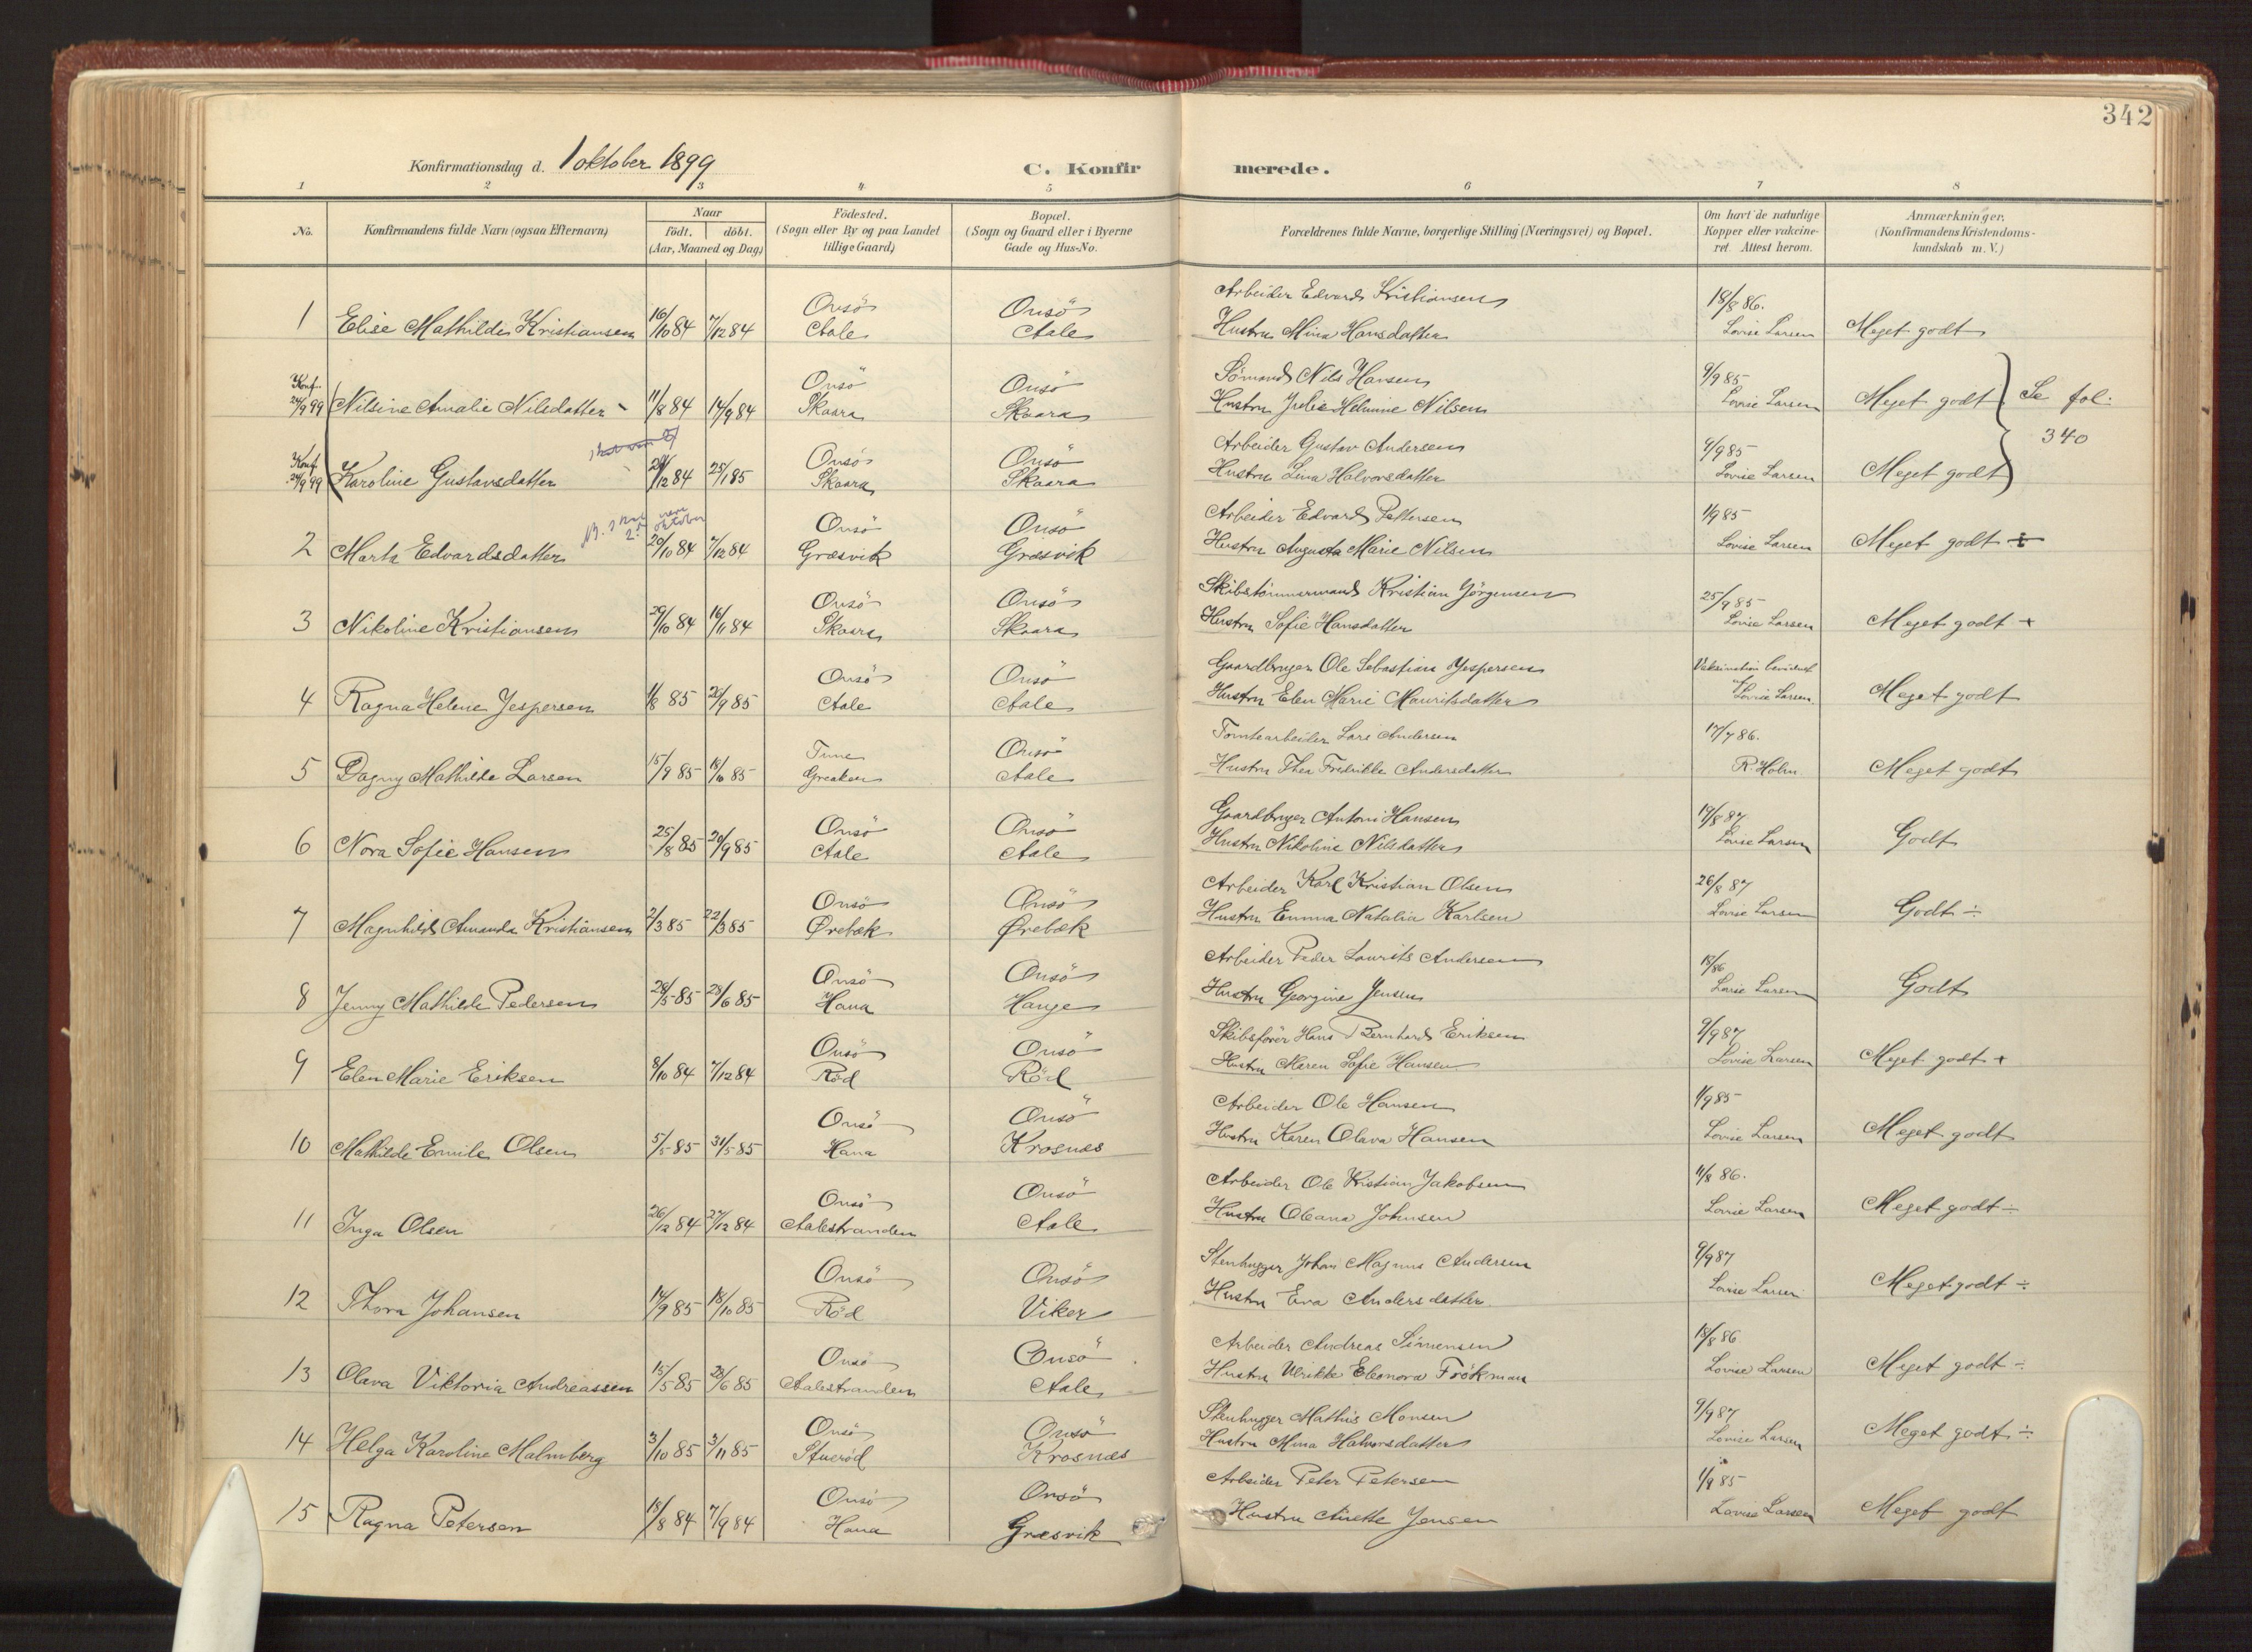 342
Konfirmationsdag d. 1 oktober 1899
C. Konfirmerede.
1 2 3 4 5 6 7 8
No.
Konfirmandens fulde Navn (ogsaa Efternavn)
Naar
födt. döbt.
(Aar, Maaned og Dag)
Födested.
(Sogn eller By og paa Landet
tillige Gaard)
Bopæl.
(Sogn og Gaard eller i Byerne
Gade og Hus-No.
Forældrenes fulde Navne, borgerlige Stilling (Næringsvei) og Bopæl.
Om havt de naturlige
Kopper eller vakcine-
ret. Attest herom.
Anmærkninger.
(Konfirmandens Kristendoms-
kundskab m. V.)
Onsö Onsö Arbeider Edvard Kristiansen 18/8 86.
1 Elise Mathilde Kristiansen 16/10 84 7/12 84 Aale Aale Hustru Mina Hansdatter Lovise Larsen Meget godt
Konf. Onsö Onsö Sömand Nils Hansen 9/9 85
24/9 99 Nilsine Amalie Nilsdatter 11/8 84 14/9 84 Skaara Skaara Hustru Julie Helmine Nilsen Lovise Larsen Meget godt Se fol.
340
Konf. Onsö Onsö Arbeider Gustav Andersen 9/9 85
24/9 99 Karoline Gustavsdatter /12 84 25/1 85 Skaara Skaara Hustru Lina Halvorsdatter Lovise Larsen Meget godt
være oktober
Onsö Onsö Arbeider Edvard Pettersen 1/9 85
2 Marta Edvardsdatter 20/10 84 7/12 84 Græsvik Græsvik Hustru Augusta Marie Nilsen Lovise Larsen Meget godt ÷
Onsö Onsö Skibstömmermand Kristian Jörgensen 25/9 85
3 Nikoline Kristiansen 29/10 84 16/11 84 Skaara Skaara Hustru Sofie Hansdatter Lovise Larsen Meget godt +
Onsö Onsö Gaardbruger Ole Sebastian Jespersen Vaksination bevidnet
4 Ragna Helene Jespersen 1/8 85 20/9 85 Aale Aale Hustru Elen Marie Mauritsdatter af Lovise Larsen Meget godt
Tune Onsö Tomtearbeider Lars Andersen 17/7 86.
5 Dagny Mathilde Larsen 15/9 85 18/10 85 Greaker Aale Hustru Thea Fredrikke Andersdatter R. Holm Meget godt
Onsö Onsö Gaardbruger Anton Hansen 19/8 87
6 Nora Sofie Hansen 25/8 85 20/9 85 Aale Aale Hustru Nikoline Nilsdatter Lovise Larsen Godt
Onsö Onsö Arbeider Karl Kristian Olsen 26/8 87
7 Magnhild Amanda Kristiansen 2/3 85 22/3 85 Ørebæk Ørebæk Hustru Emma Natalia Karlsen Lovise Larsen Godt ÷
Onsö Onsö Arbeider Peder Laurits Andersen
8 Jenny Mathilde Pedersen 28/5 85 28/6 85 Hana Hauge Hustru Georgine Jensen Lovise Larsen Godt
Onsö Onsö Skibsförer Hans Bernhard Eriksen 9/9 87
9 Elen Marie Eriksen 8/10 84 7/12 84 Röd Röd Hustru Maren Sofie Hansen Lovise Larsen Meget godt +
Onsö Onsö Arbeider Ole Hansen 1/9 85
10 Mathilde Emile Olsen 5/5 85 31/5 85 Hana Krosnes Hustru Karen Olava Hansen Lovise Larsen Meget godt
Onsö Onsö Arbeider Ole Kristian Jakobsen 11/8 86.
11 Inga Olsen 26/12 84 27/12 84 Aalestranden Aale Hustru Oleana Johnsen Lovise Larsen Meget godt ÷
Onsö Onsö Stenhugger Johan Magnus Andersen 9/9 87
12 Thora Johansen 14/9 85 18/10 85 Röd Viker Hustru Eva Andersdatter Lovise Larsen Meget godt ÷
Onsö Onsö Arbeider Andreas Simensen 18/8 86
13 Olava Viktoria Andreassen 15/5 85 28/6 85 Aalestranden Aale Hustru Ulrikke Eleonora Frökman Lovise Larsen Meget godt ÷
Onsö Onsö Stenhugger Mathis Monsen 9/9 87
14 Helga Karoline Malmberg 3/10 85 3/11 85 Stueröd Krosnes Hustru Mina Halvorsdatter Lovise Larsen Meget godt ÷
Onsö Onsö Arbeider Peter Petersen 1/9 85
15 Ragna Petersen 15/8 84 7/9 84 Hana Græsvik Hustru Anette Jensen Lovise Larsen Meget godt